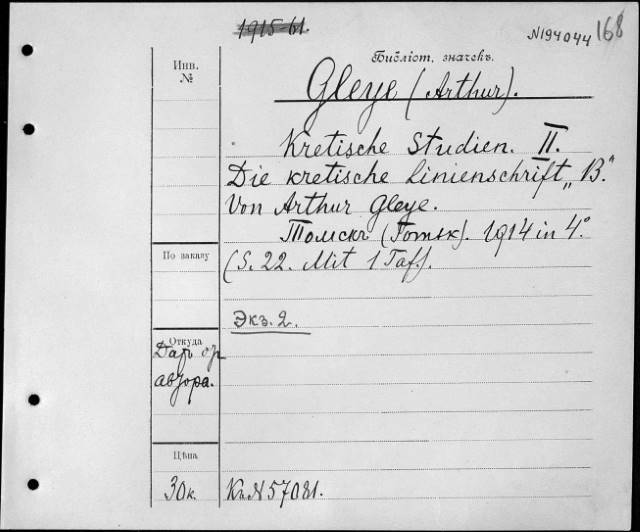 1915-61.
N194044
168
Инв.
№
Библіот. значекъ.
Gleye (Arthur).
Kretische Studien. II.
Die kretische Linienschrift „B."
Von Arthur Gleye.
Томскъ (Tomsk). 1914 in 4°.
По заказу
(S. 22. Mit 1 Taf.).
Экз. 2.
Откуда
Даръ от
автора.
Цѣна
30 к.
Кн. N 57081.